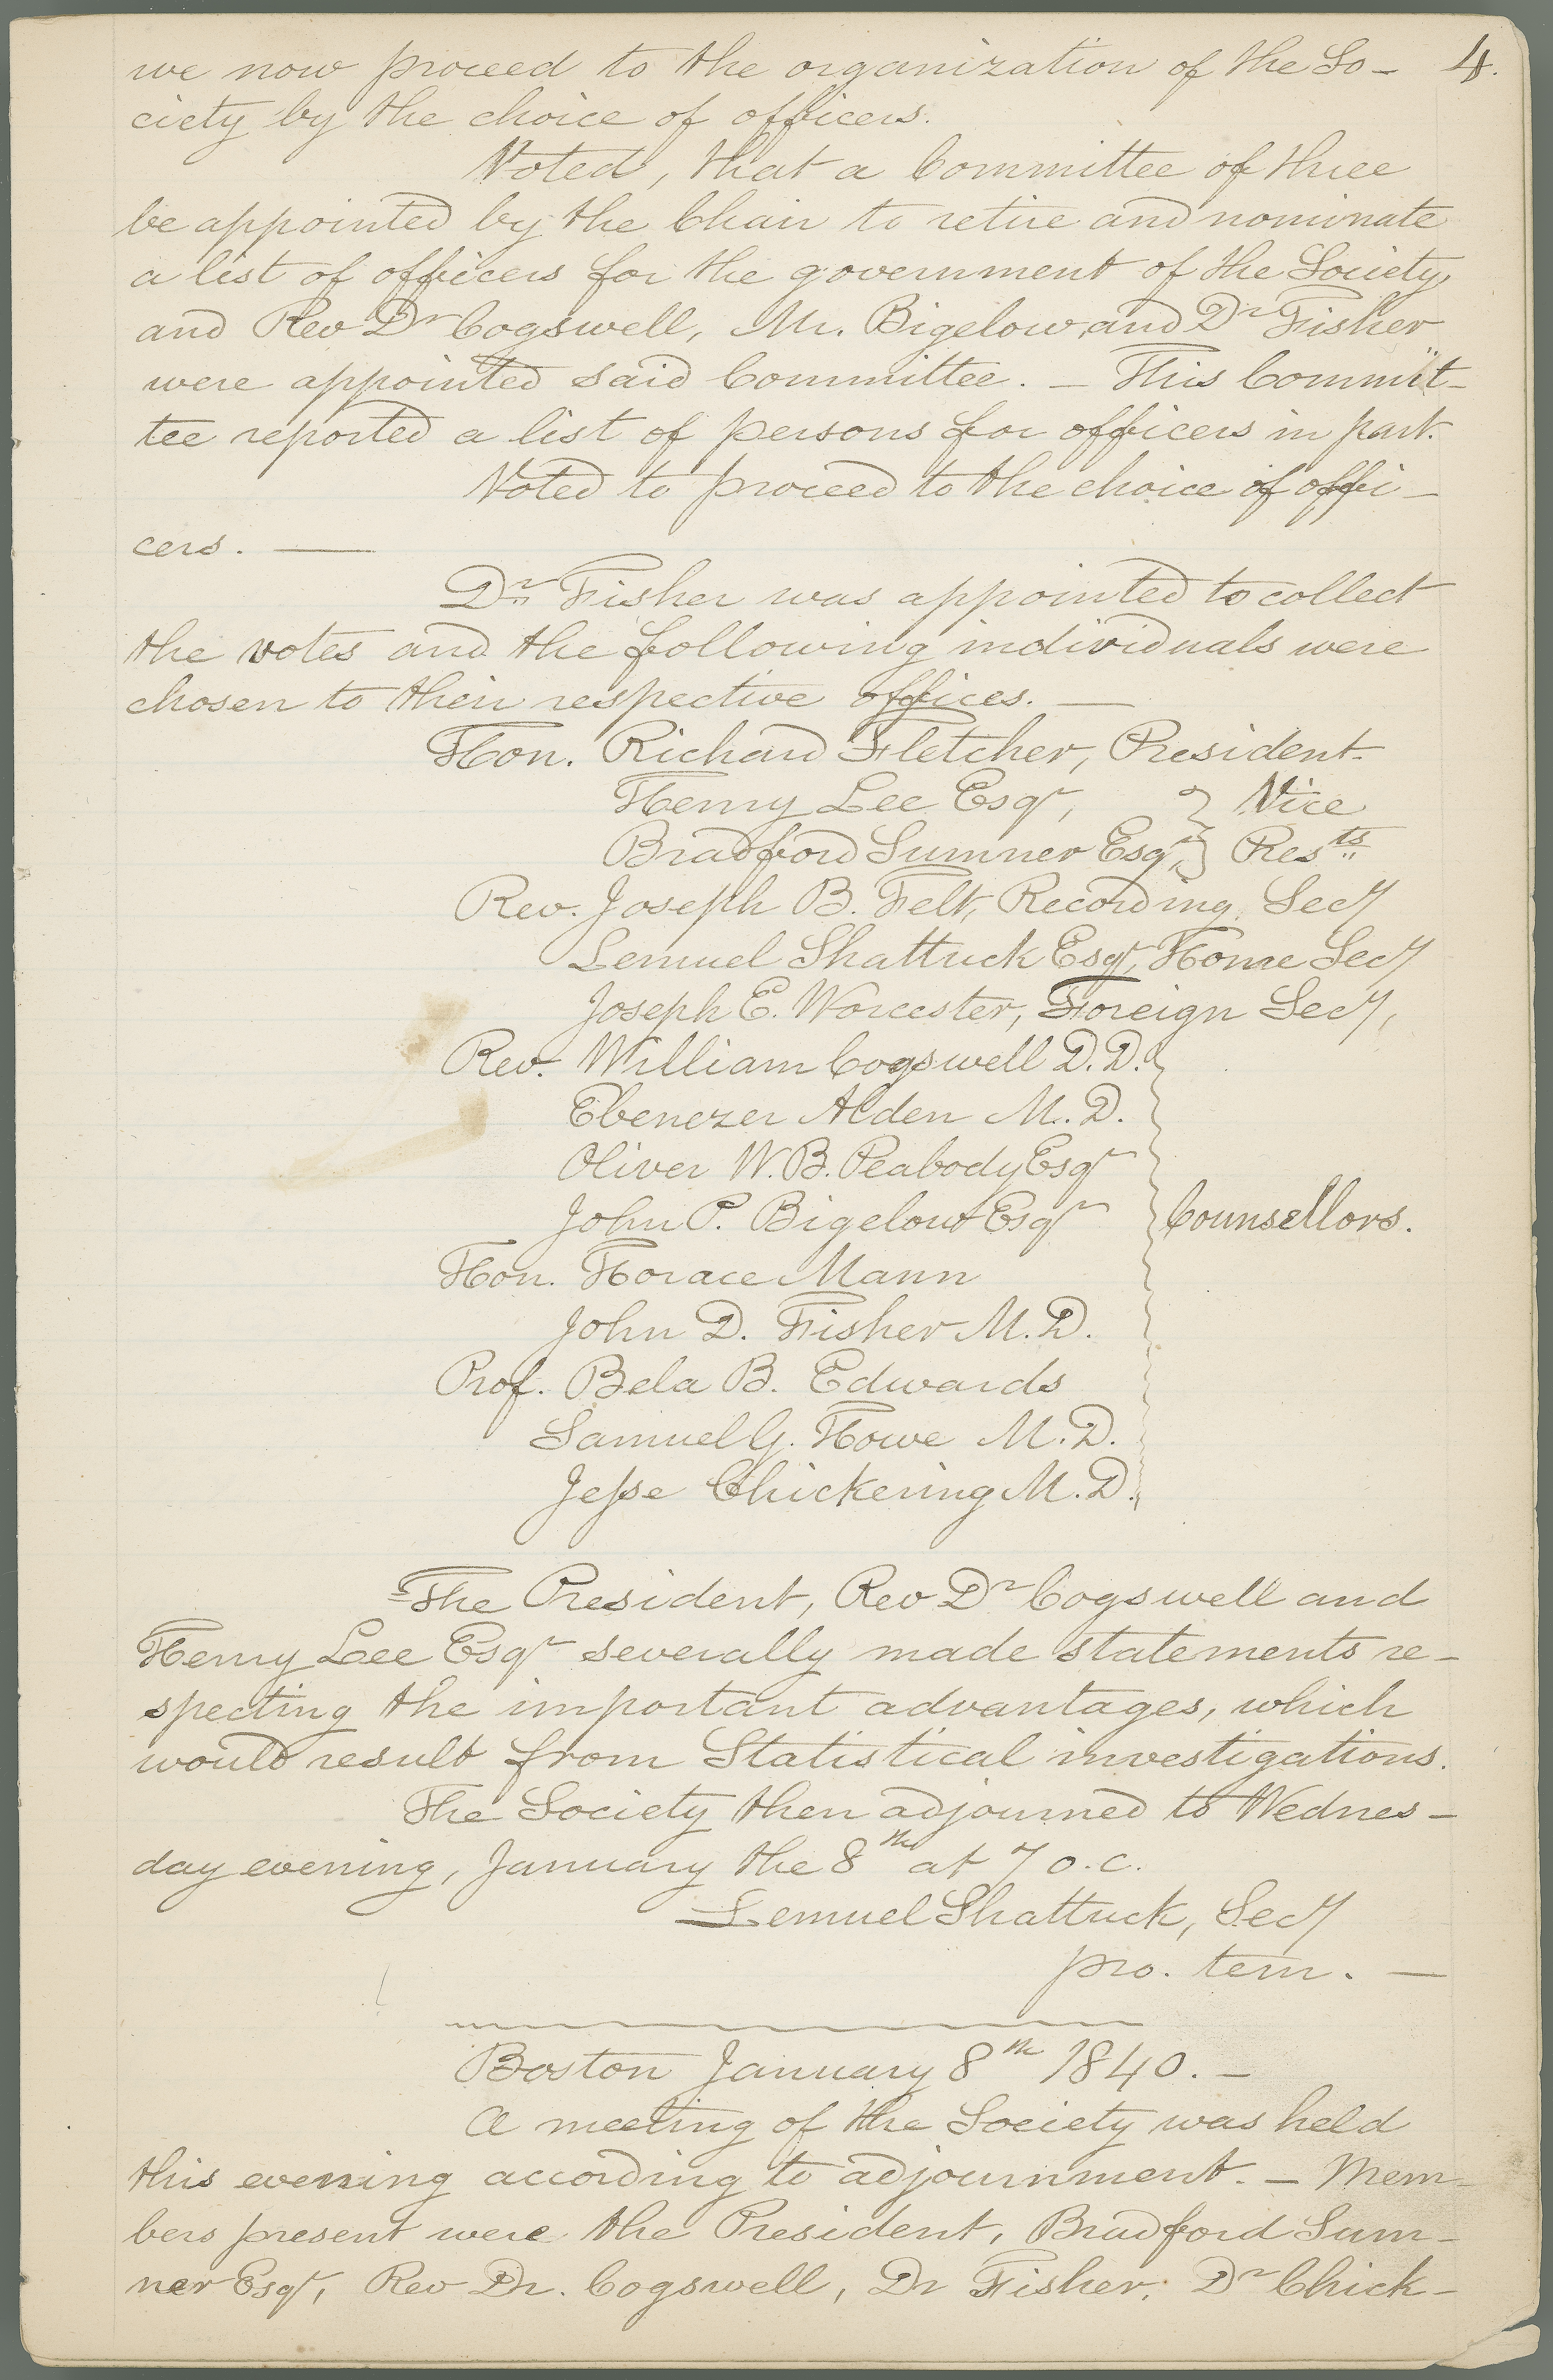 we now proceed to the organization of the So- 4.
ciety by the choice of officers.
Voted, that a Committee of three
be appointed by the Chair to retire and nominate
a list of officers for the government of the Society,
and Rev Dr Cogswell, Mr. Bigelow, and Dr Fisher
were appointed said Committee. — This Commit-
tee reported a list of persons for officers in part.
Voted to proceed to the choice of offi-
cers. —
Dr. Fisher was appointed to collect
the votes and the following individuals were
chosen to their respective offices. —
Hon. Richard Fletcher, President.
Henry Lee Esqr, } Vice
Bradford Sumner Esqr, } Prests
Rev. Joseph B. Felt, Recording Secy
Lemuel Shattuck Esqr, Home Secy
Joseph E. Worcester, Foreign Secy,
Rev. William Cogswell D.D.
Ebenezer Alden M.D.
Oliver W.B. Peabody Esqr
John P. Bigelow Esqr } Counsellors.
Hon. Horace Mann
John D. Fisher M.D.
Prof. Bela B. Edwards
Samuel G. Howe M.D.
Jesse Chickering M.D.
The President, Rev Dr Cogswell and
Henry Lee Esqr severally made statements re-
specting the important advantages, which
would result from Statistical investigations.
The Society then adjourned to Wednes-
day evening, January the 8th at 7 o.c.
Lemuel Shattuck, Secy
pro. tem. —
Boston January 8th 1840. —
A meeting of the Society was held
this evening according to adjournment. — Mem-
bers present were the President, Bradford Sum-
ner Esqr, Rev Dr. Cogswell, Dr Fisher, Dr Chick-